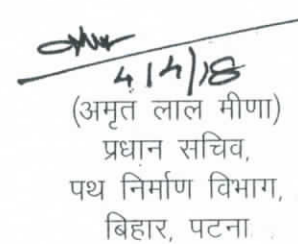 4/4/18
(अमृत लाल मीणा)
प्रधान सचिव,
पथ निर्माण विभाग,
बिहार, पटना